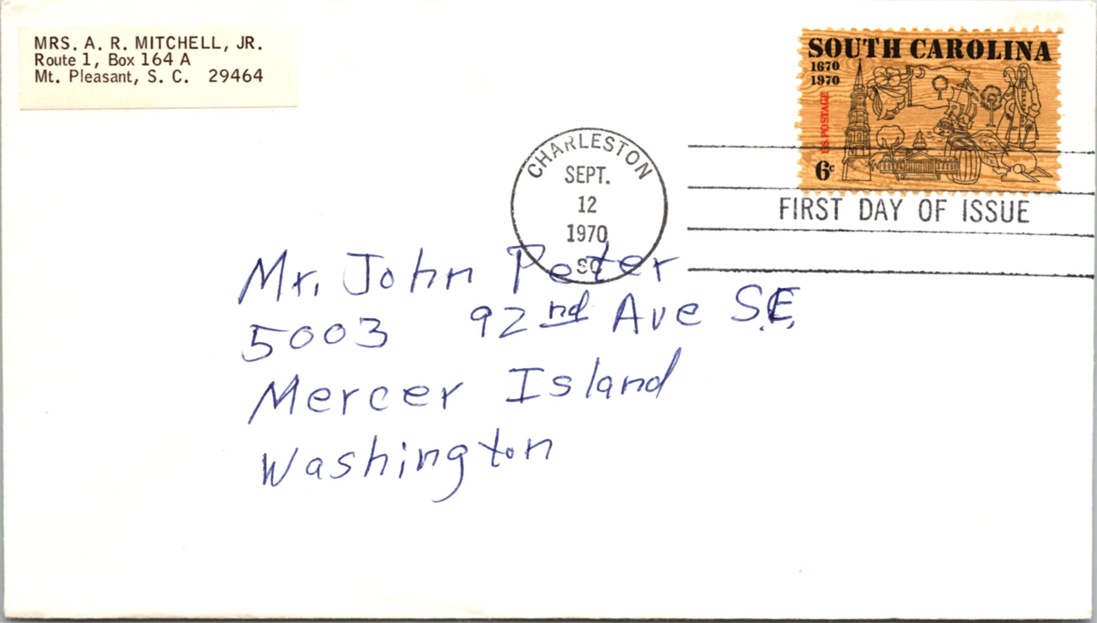 MRS. A. R. MITCHELL, JR.
Route 1, Box 164 A
Mt. Pleasant, S. C. 29464
SOUTH CAROLINA
1670
1970
US POSTAGE
6c
CHARLESTON
SEPT.
12
1970
SC
FIRST DAY OF ISSUE
Mr. John Peter
5003 92nd Ave S.E.
Mercer Island
Washington